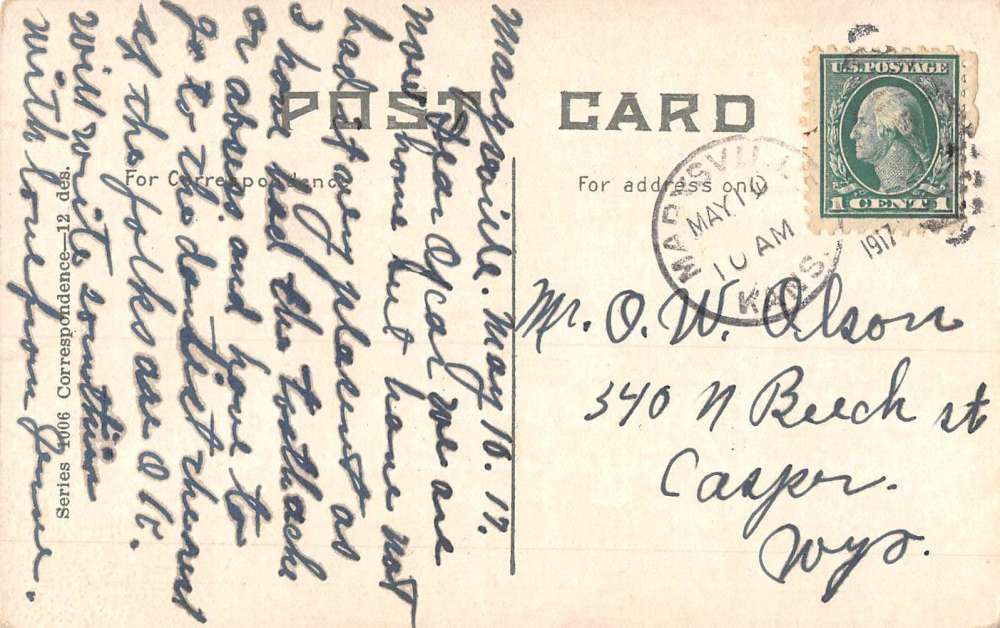 POST CARD
For Correspondence
For address only
U.S. POSTAGE
1 CENT 1
MARYSVILLE
MAY 19
10 AM
KANS.
1917
Mr. O. W. Olson
340 N Beech st
Casper.
Wyo.
Marysville. May 18. 17.
Dear Oscal we are
now home but have not
had aney plasent as
I have had the toothache
or abses and have to
go to the dantist the rest
of the folks are O K.
will write somethin
with love from Jennie.
Series 1006 Correspondence—12 des.